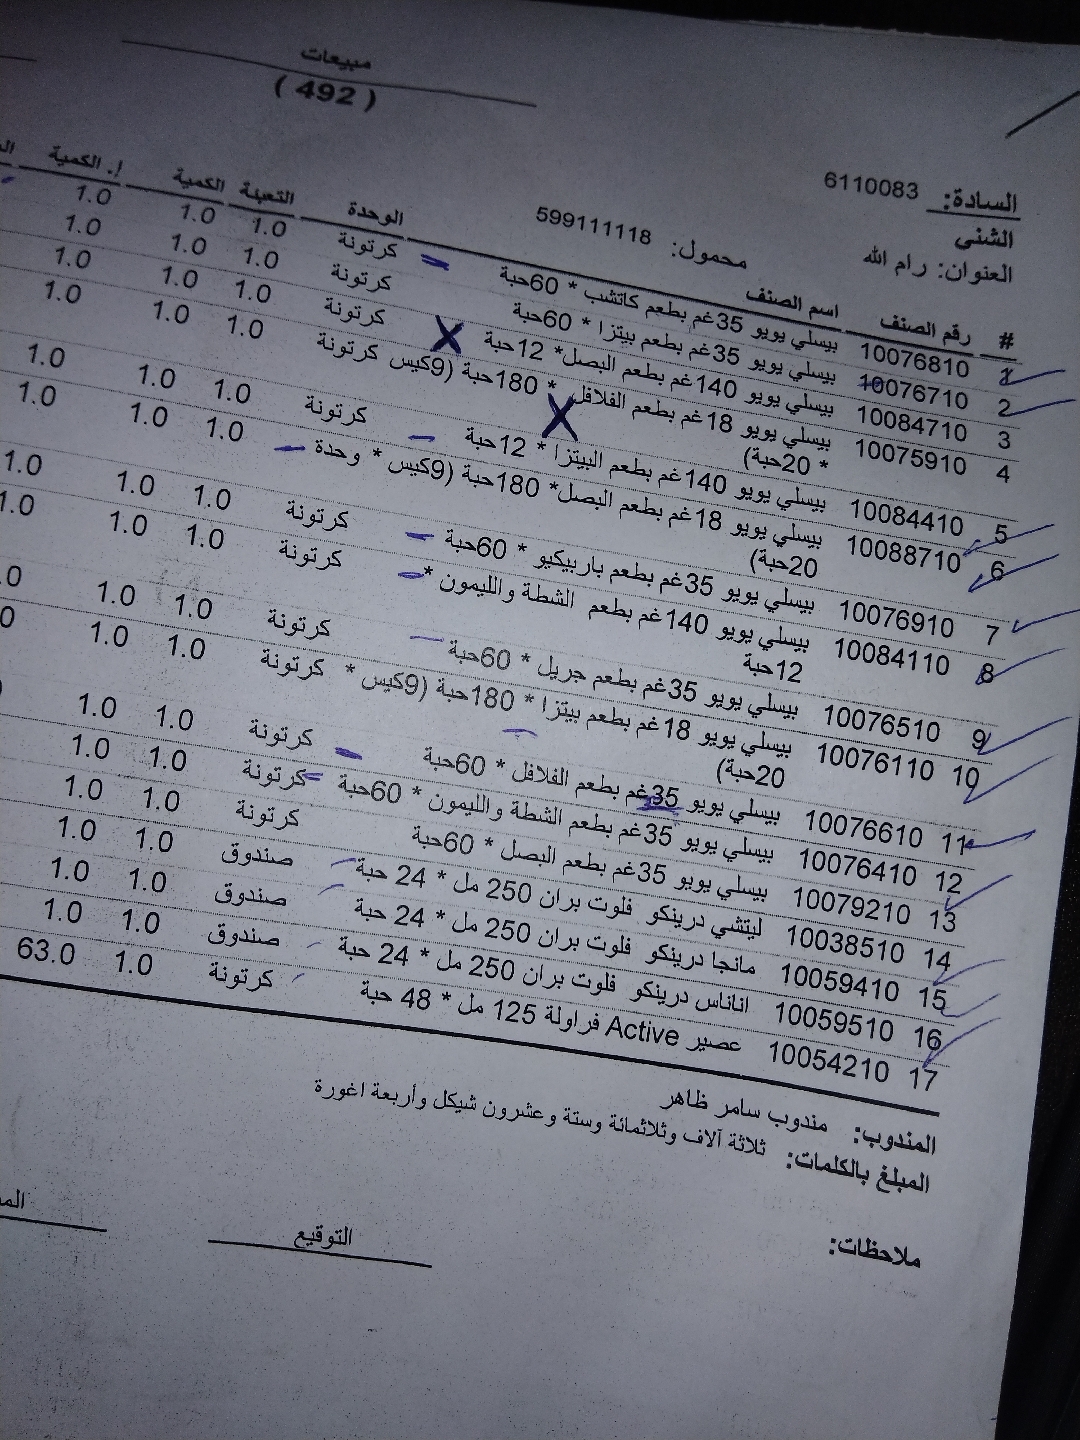 مبيعات
( 492 )
السادة: 6110083
الشني
العنوان: رام الله محمول: 599111118
# رقم الصنف اسم الصنف الوحدة التعبئة الكمية ا. الكمية
1 10076810 بيسلي يويو 35غم بطعم كاتشب * 60حبة كرتونة 1.0 1.0 1.0
2 10076710 بيسلي يويو 35غم بطعم بيتزا * 60حبة كرتونة 1.0 1.0 1.0
3 10084710 بيسلي يويو 140غم بطعم البصل* 12حبة كرتونة 1.0 1.0 1.0
4 10075910 بيسلي يويو 18غم بطعم الفلافل * 180حبة (9كيس كرتونة 1.0 1.0 1.0
* 20حبة)
5 10084410 بيسلي يويو 140غم بطعم البيتزا * 12حبة كرتونة 1.0 1.0 1.0
6 10088710 بيسلي يويو 18غم بطعم البصل* 180حبة (9كيس * وحدة 1.0 1.0 1.0
20حبة)
7 10076910 بيسلي يويو 35غم بطعم باربيكيو * 60حبة كرتونة 1.0 1.0 1.0
8 10084110 بيسلي يويو 140غم بطعم الشطة والليمون * كرتونة 1.0 1.0 1.0
12حبة
9 10076510 بيسلي يويو 35غم بطعم جريل * 60حبة كرتونة 1.0 1.0
10 10076110 بيسلي يويو 18غم بطعم بيتزا * 180حبة (9كيس * كرتونة 1.0 1.0
20حبة)
11 10076610 بيسلي يويو 35غم بطعم الفلافل * 60حبة كرتونة 1.0 1.0
12 10076410 بيسلي يويو 35غم بطعم الشطة والليمون * 60حبة كرتونة 1.0 1.0
13 10079210 بيسلي يويو 35غم بطعم البصل * 60حبة كرتونة 1.0 1.0
14 10038510 ليتشي درينكو فلوت بران 250 مل * 24 حبة صندوق 1.0 1.0
15 10059410 مانجا درينكو فلوت بران 250 مل * 24 حبة صندوق 1.0 1.0
16 10059510 اناناس درينكو فلوت بران 250 مل * 24 حبة صندوق 1.0 1.0
17 10054210 عصير Active فراولة 125 مل * 48 حبة كرتونة 1.0 63.0
المندوب: مندوب سامر ظاهر
المبلغ بالكلمات: ثلاثة آلاف وثلاثمائة وستة وعشرون شيكل وأربعة اغورة
ملاحظات:
التوقيع